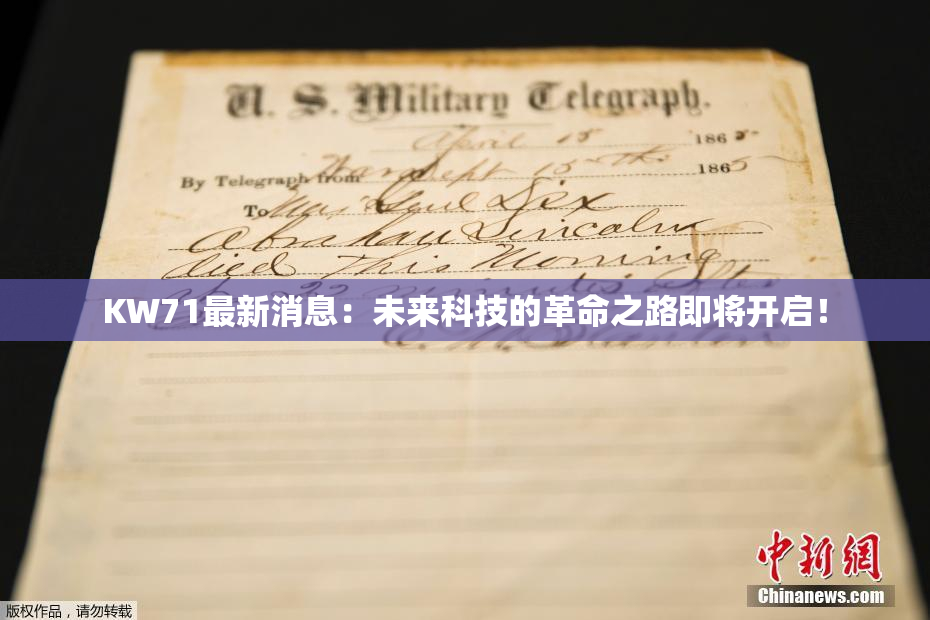 U. S. Military Telegraph.
April 15 1865
By Telegraph from War Dept 15th 1865
To Maj Genl Dix
Abraham Lincoln
died This Morning
22 minutes after
KW71最新消息：未来科技的革命之路即将开启！
E. M. Stanton
中新网
Chinanews.com
版权作品，请勿转载